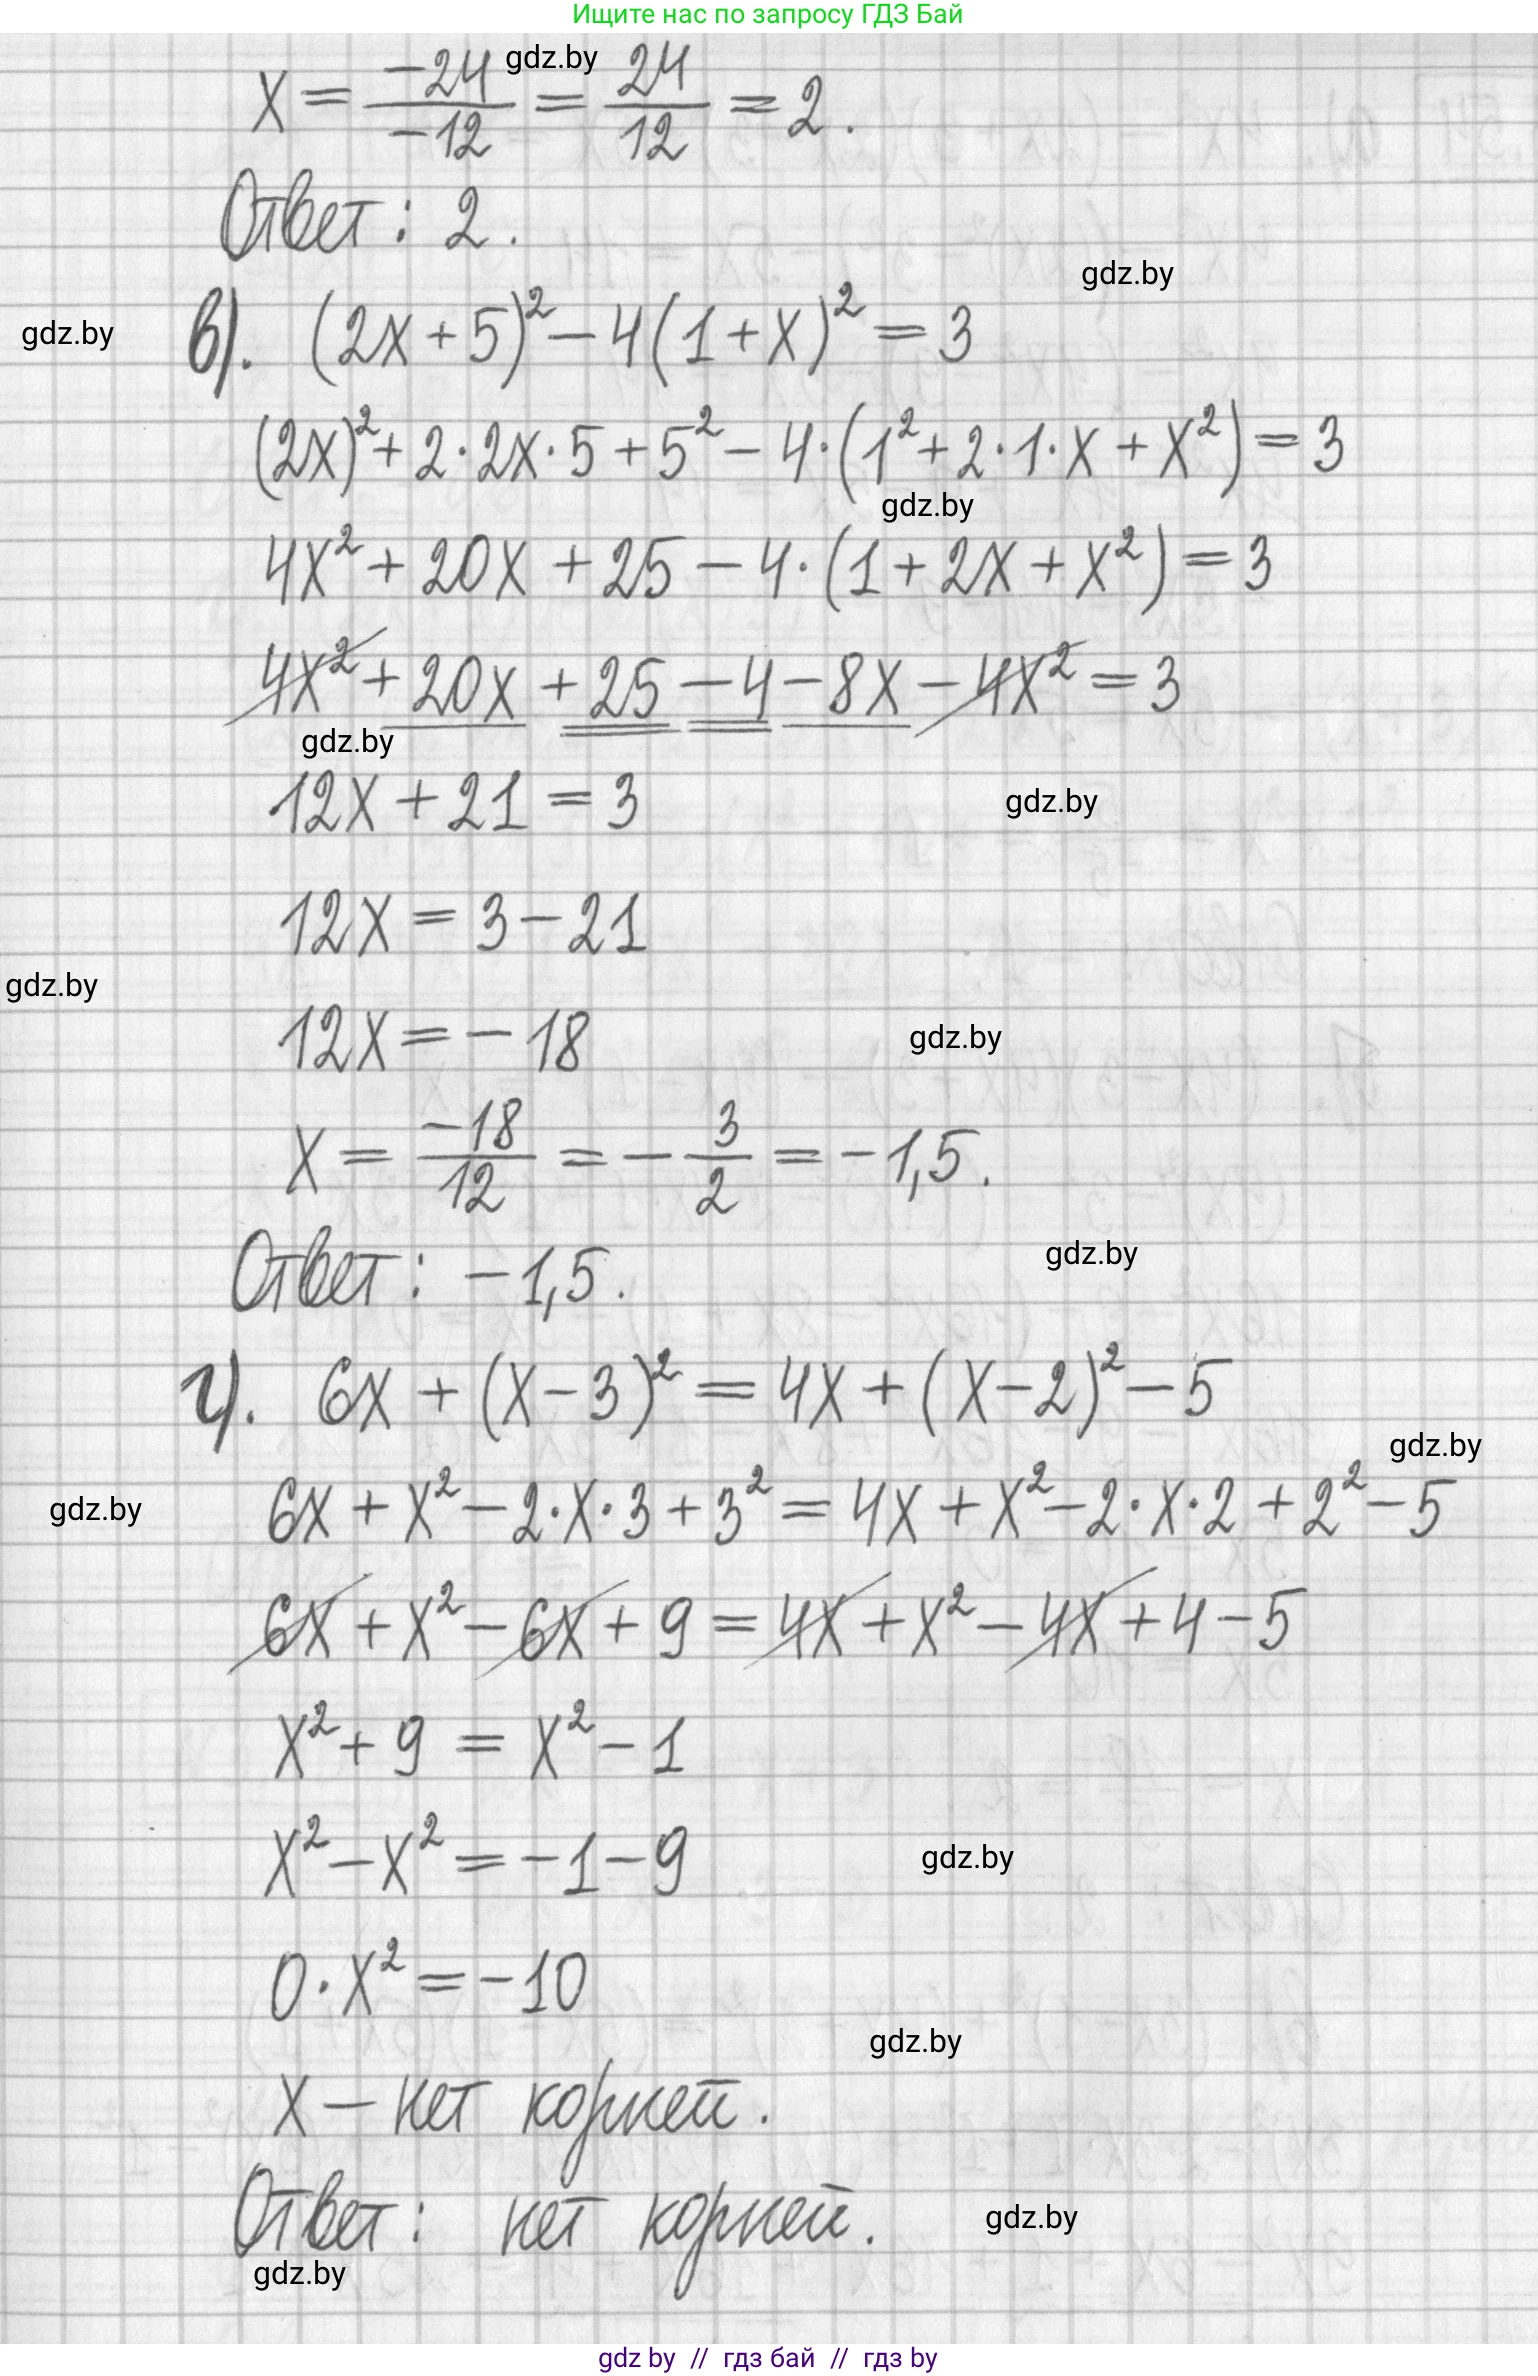 Ищите нас по запросу ГДЗ Бай
x = -24/-12 = 24/12 = 2.
gdz.by
Ответ: 2.
gdz.by
gdz.by
в). (2x+5)² - 4(1+x)² = 3
(2x)² + 2·2x·5 + 5² - 4·(1² + 2·1·x + x²) = 3
gdz.by
4x² + 20x + 25 - 4·(1 + 2x + x²) = 3
4x² + 20x + 25 - 4 - 8x - 4x² = 3
gdz.by
12x + 21 = 3
gdz.by
12x = 3 - 21
gdz.by
12x = -18
gdz.by
x = -18/12 = -3/2 = -1,5.
Ответ: -1,5.
gdz.by
г). 6x + (x-3)² = 4x + (x-2)² - 5
gdz.by
gdz.by
6x + x² - 2·x·3 + 3² = 4x + x² - 2·x·2 + 2² - 5
6x + x² - 6x + 9 = 4x + x² - 4x + 4 - 5
x² + 9 = x² - 1
x² - x² = -1 - 9
gdz.by
0·x² = -10
gdz.by
x - нет корней.
Ответ: нет корней.
gdz.by
gdz.by
gdz by // гдз бай // гдз by